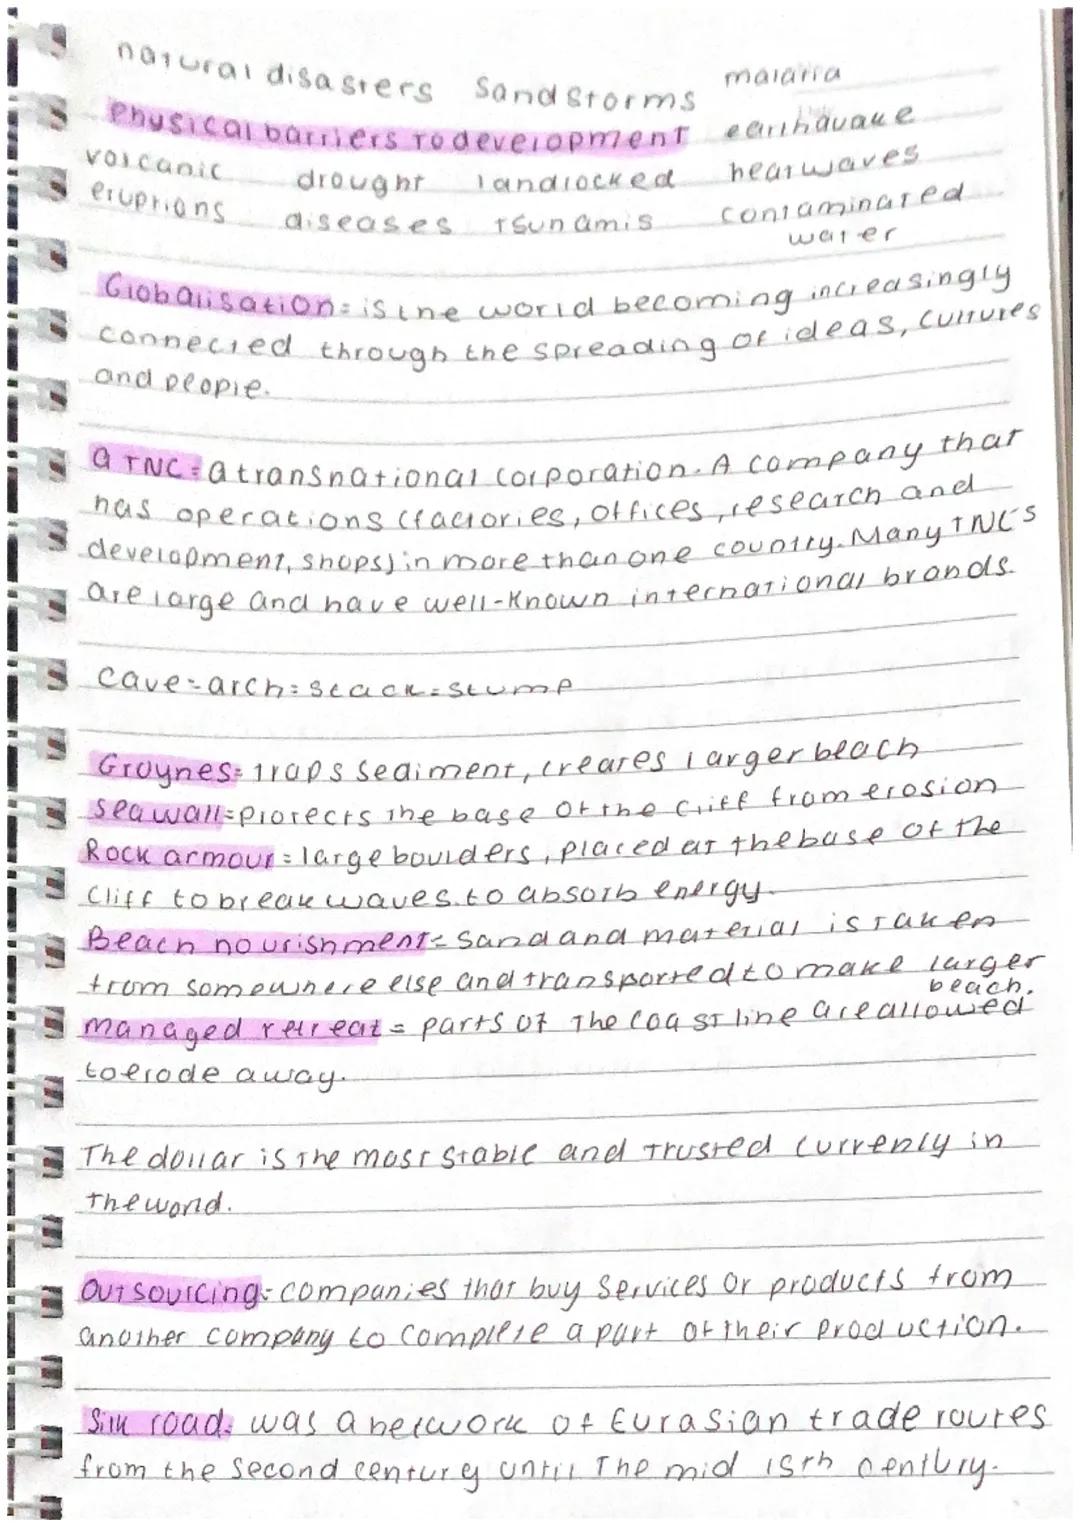 natural disasters Sandstorms malaria
Physical barriers to development earthquake
volcanic drought landlocked heatwaves
eruptions diseases tsunamis contaminated
water
Globalisation= is the world becoming increasingly
connected through the spreading of ideas, cultures
and people.
a TNC= a transnational corporation. A company that
has operations (factories, offices, research and
development, shops) in more than one country. Many TNC's
are large and have well-known international brands.
cave-arch=stack=stump
Groynes= traps sediment, creates larger beach
sea wall= protects the base of the cliff from erosion
Rock armour= large boulders, placed at the base of the
cliff to break waves. to absorb energy.
Beach nourishment= sand and material is taken
from somewhere else and transported to make larger
beach.
managed retreat = parts of the coast line are allowed
to erode away.
The dollar is the most stable and trusted currency in
the world.
Outsourcing= companies that buy services or products from
another company to complete a part of their production.
Silk road: was a network of Eurasian trade routes
from the second century until The mid 15th century.